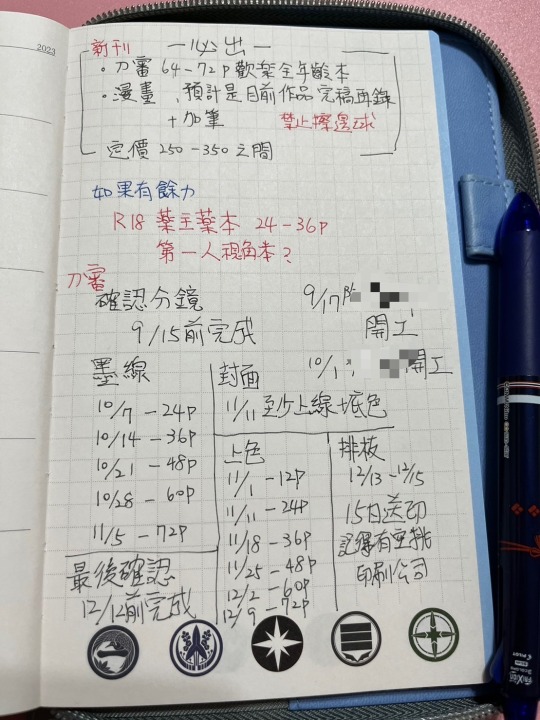 2023
新刊 一必出一
・刀審 64-72P歡樂全年齡本
・漫畫、預計是目前作品完稿再錄
+加筆 禁止擦邊球
定價 250-350之間
如果有餘力
R18 薬主薬本 24-36P
第一人視角本?
刀審
確認分鏡
9/15前完成
9/17
開工
10/1
開工
墨線
10/7-24P
10/14-36P
10/21-48P
10/28-60P
11/5-72P
最後確認
12/12前完成
封面
11/11至少上線+底色
上色
11/1-12P
11/11-24P
11/18-36P
11/25-48P
12/2-60P
12/9-72P
排板
12/13-12/15
15日送印
記得有空挑
印刷公司
PILOT